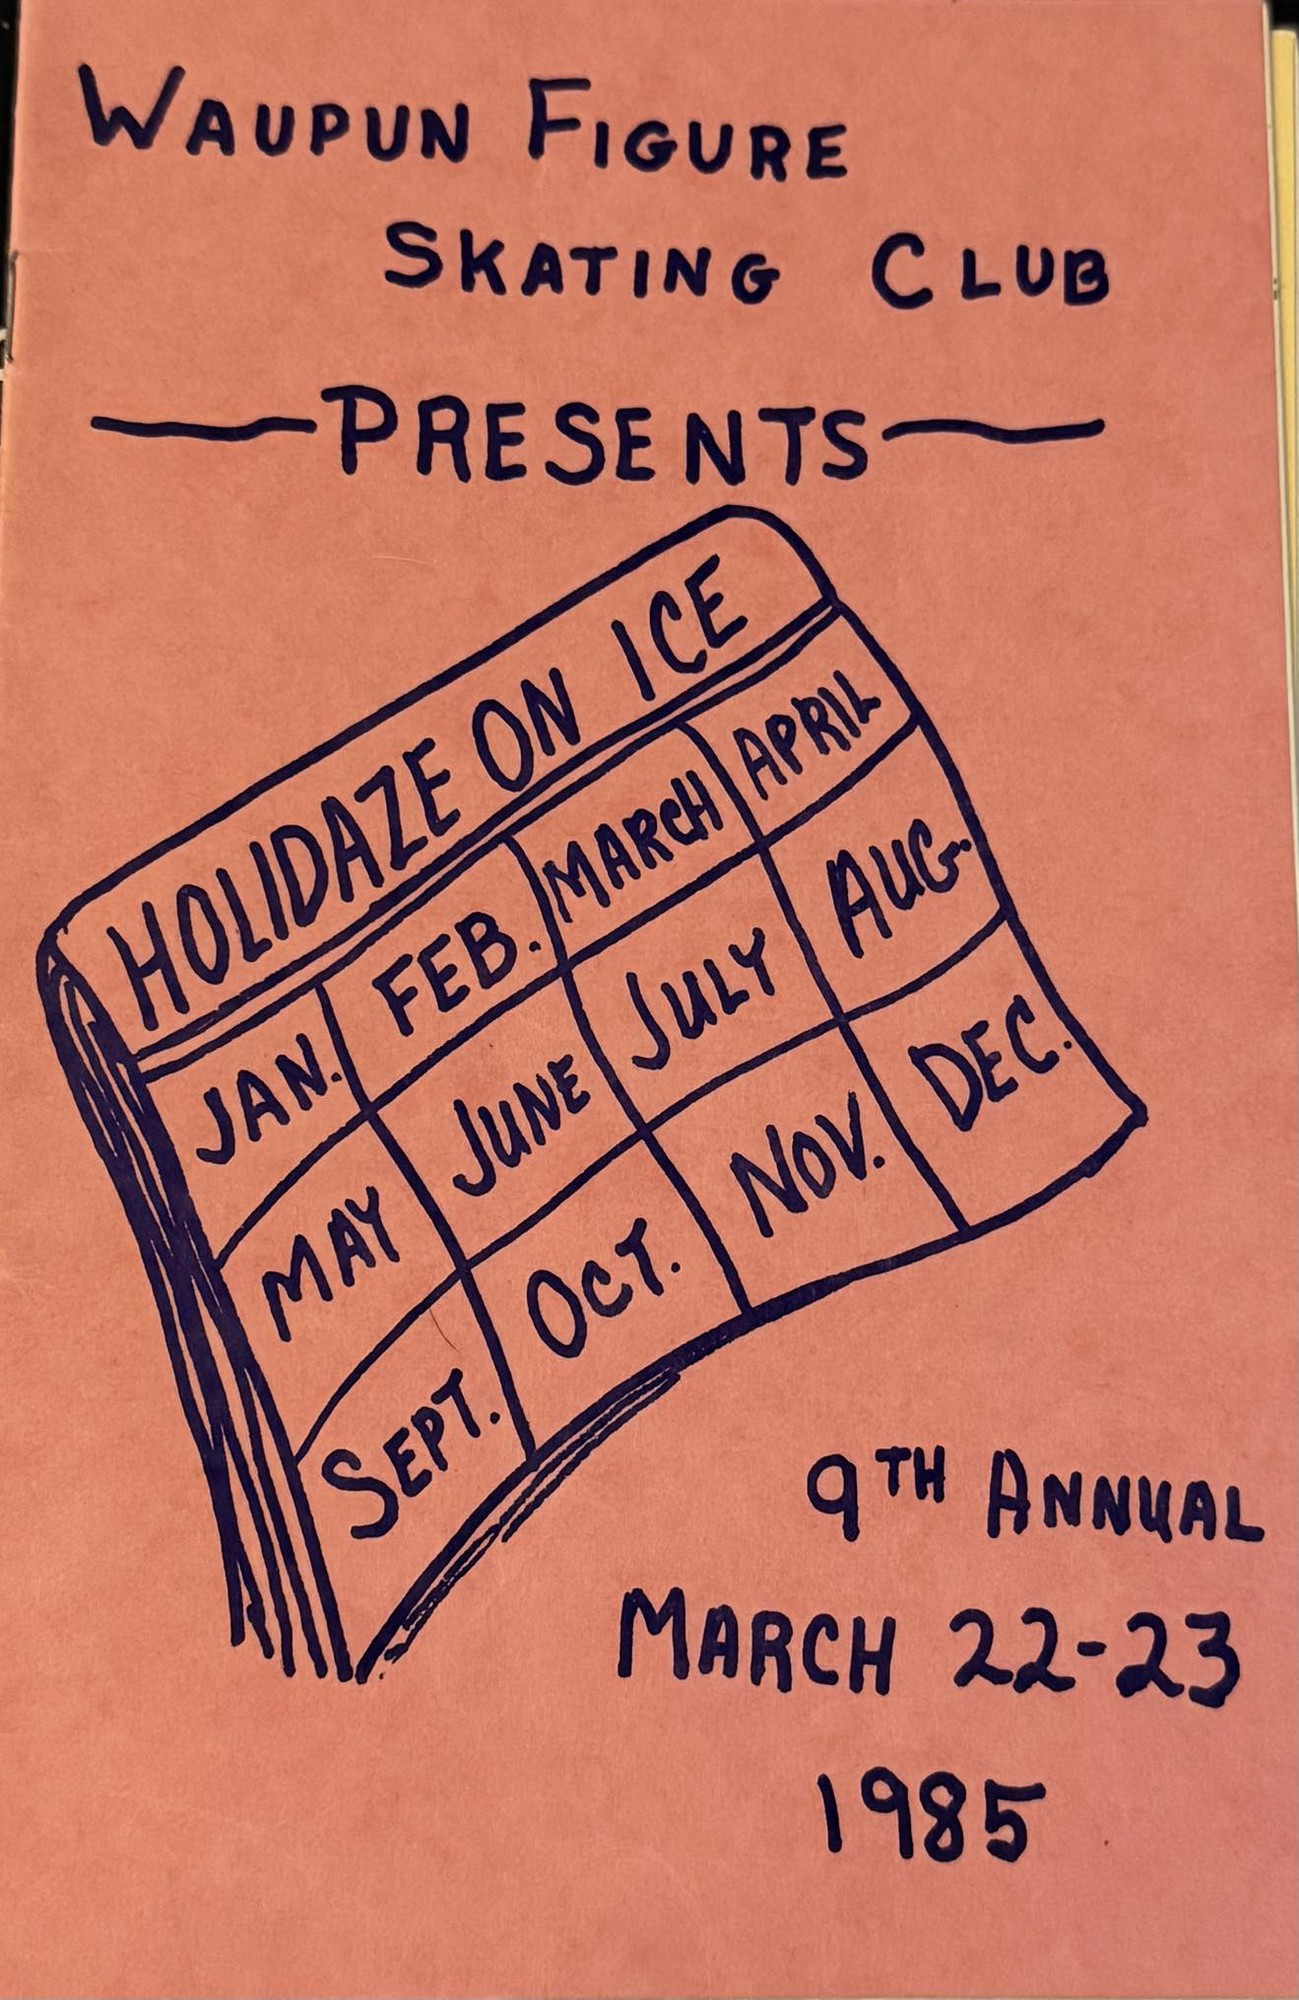 WAUPUN FIGURE
SKATING CLUB
PRESENTS
HOLIDAZE ON ICE
JAN. FEB. MARCH APRIL
MAY JUNE JULY AUG.
SEPT. OCT. NOV. DEC.
9TH ANNUAL
MARCH 22-23
1985